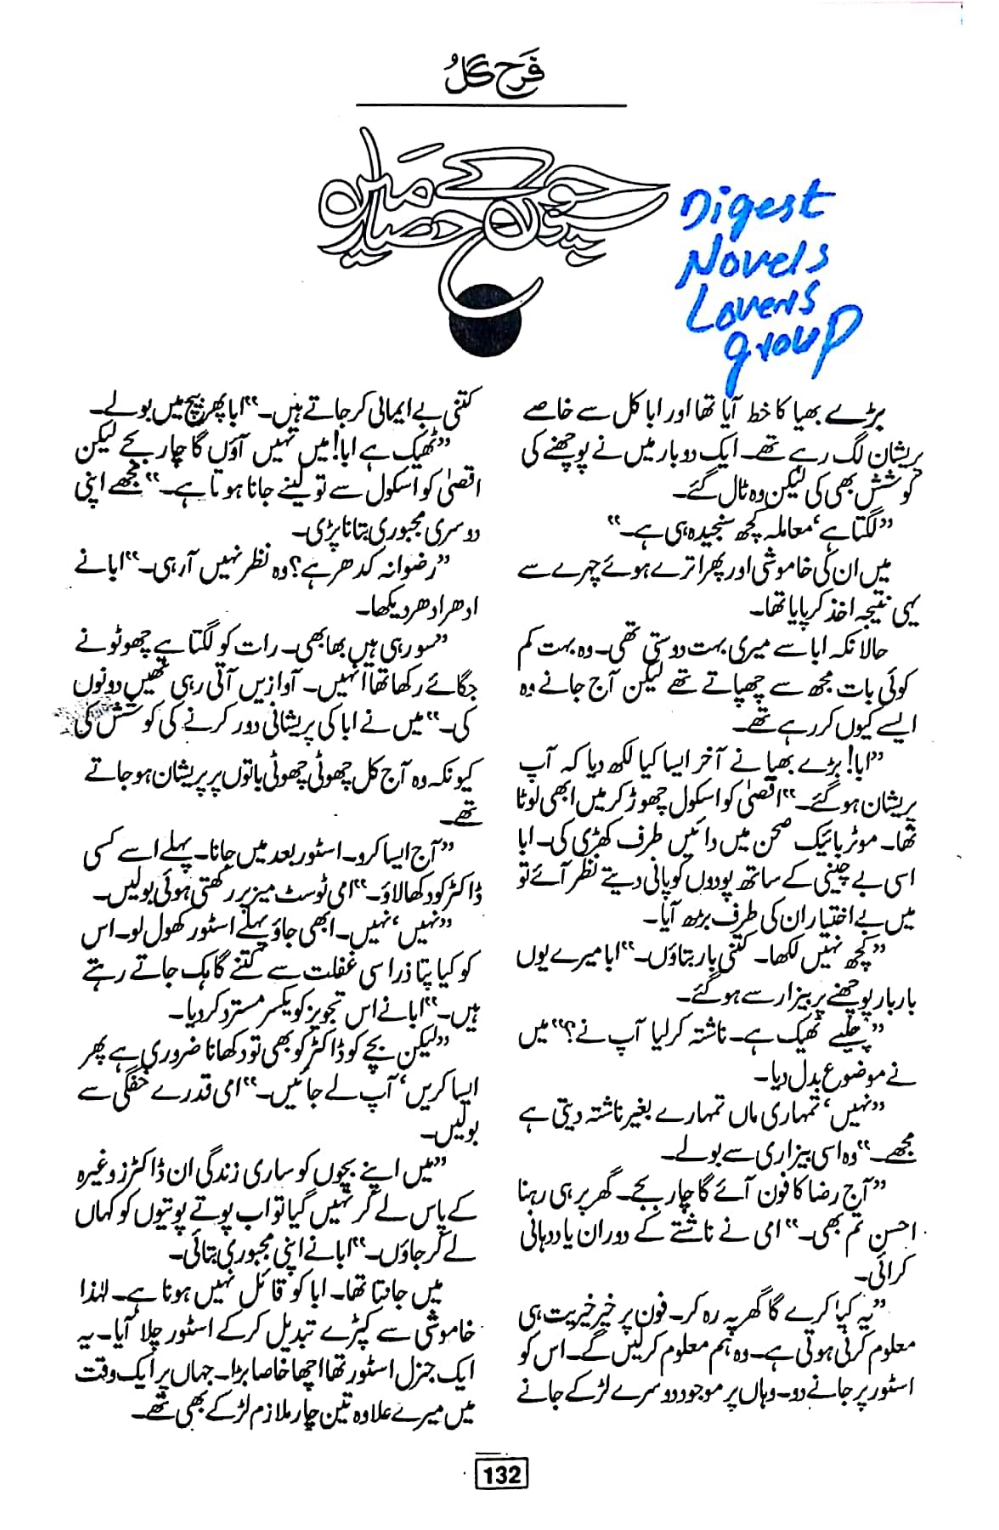 فرح گل
Digest
Novels
Lovers
group
بڑے بھیا کا خط آیا تھا اور ابا کل سے خاصے
پریشان لگ رہے تھے۔ ایک دو بار میں نے پوچھنے کی
کوشش بھی کی لیکن وہ ٹال گئے۔
”لگتا ہے‘ معاملہ کچھ سنجیدہ ہی ہے۔“
میں ان کی خاموشی اور پھر اترے ہوئے چہرے سے
یہی نتیجہ اخذ کر پایا تھا۔
حالانکہ ابا سے میری بہت دوستی تھی۔ وہ بہت کم
کوئی بات مجھ سے چھپاتے تھے لیکن آج جانے وہ
ایسے کیوں کر رہے تھے۔
”ابا! بڑے بھیا نے آخر ایسا کیا لکھ دیا کہ آپ
پریشان ہو گئے۔“ اقصیٰ کو اسکول چھوڑ کر میں ابھی لوٹا
تھا۔ موٹر بائیک صحن میں دائیں طرف کھڑی کی۔ ابا
اسی بے چینی کے ساتھ پودوں کو پانی دیتے نظر آئے تو
میں بے اختیار ان کی طرف بڑھ آیا۔
”کچھ نہیں لکھا۔ کتنی بار بتاؤں۔“ ابا میرے یوں
بار بار پوچھنے پر بیزار سے ہو گئے۔
”چلیے ٹھیک ہے۔ ناشتہ کر لیا آپ نے؟“ میں
نے موضوع بدل دیا۔
”نہیں‘ تمہاری ماں تمہارے بغیر ناشتہ دیتی ہے
مجھے۔“ وہ اسی بیزاری سے بولے۔
”آج رضا کا فون آئے گا چار بجے۔ گھر پر ہی رہنا
احسن تم بھی۔“ امی نے ناشتے کے دوران یاد دہانی
کرائی۔
”یہ کیا کرے گا گھر پہ رہ کر۔ فون پر خیر خیریت ہی
معلوم کرنی ہوتی ہے۔ وہ ہم معلوم کر لیں گے۔ اس کو
اسٹور پر جانے دو۔ وہاں پر موجود دوسرے لڑکے جانے
کتنی بے ایمانی کر جاتے ہیں۔“ ابا پھر بیچ میں بولے۔
”ٹھیک ہے ابا! میں نہیں آؤں گا چار بجے لیکن
اقصیٰ کو اسکول سے تو لینے جانا ہوتا ہے۔“ مجھے اپنی
دوسری مجبوری بتانا پڑی۔
”رضوانہ کدھر ہے؟ وہ نظر نہیں آ رہی۔“ ابا نے
ادھر ادھر دیکھا۔
”سو رہی ہیں بھابھی۔ رات کو لگتا ہے چھوٹو نے
جگائے رکھا تھا انہیں۔ آوازیں آتی رہی تھیں دونوں
کی۔“ میں نے ابا کی پریشانی دور کرنے کی کوشش کی
کیونکہ وہ آج کل چھوٹی چھوٹی باتوں پر پریشان ہو جاتے
تھے۔
”آج ایسا کرو۔ اسٹور بعد میں جانا۔ پہلے اسے کسی
ڈاکٹر کو دکھا لاؤ۔“ امی ٹوسٹ میز پر رکھتی ہوئی بولیں۔
”نہیں‘ نہیں۔ ابھی جاؤ پہلے اسٹور کھول لو۔ اس
کو کیا پتا ذرا سی غفلت سے کتنے گاہک جاتے رہتے
ہیں۔“ ابا نے اس تجویز کو یکسر مسترد کر دیا۔
”لیکن بچے کو ڈاکٹر کو بھی تو دکھانا ضروری ہے پھر
ایسا کریں‘ آپ لے جائیں۔“ امی قدرے خفگی سے
بولیں۔
”میں اپنے بچوں کو ساری زندگی ان ڈاکٹرز وغیرہ
کے پاس لے کر نہیں گیا تو اب پوتے پوتیوں کو کہاں
لے کر جاؤں۔“ ابا نے اپنی مجبوری بتائی۔
میں جانتا تھا۔ ابا کو قائل نہیں ہونا ہے۔ لہٰذا
خاموشی سے کپڑے تبدیل کر کے اسٹور چلا آیا۔ یہ
ایک جنرل اسٹور تھا اچھا خاصا بڑا۔ جہاں پر ایک وقت
میں میرے علاوہ تین چار ملازم لڑکے بھی تھے۔
132